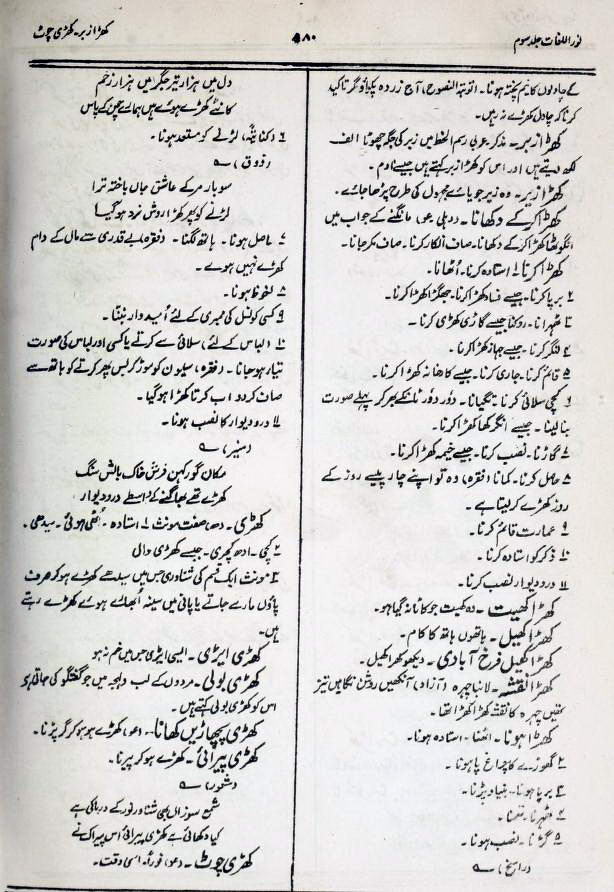 نور اللغات جلد سوم
۴۸۰
کھڑا زبر۔ کھڑی چوٹ
کے چاولوں کا نیم پختہ ہونا۔ (توبۃ النصوح) آج زردہ پکاؤ گر تاکید
کرنا کہ چاول کھڑے نہ رہیں۔
کھڑا زبر۔ مذکر۔ عربی رسم الخط میں زبر کی جگہ چھوٹا الف
لکھ دیتے ہیں اور اس کو کھڑا زبر کہتے ہیں جیسے ادم۔
کھڑا زیر۔ وہ زیر جو یائے مجہول کی طرح پڑھا جائے۔
کھڑا کر کے دکھانا۔ (دہلی۔ عو) مانگنے کے جواب میں
انگوٹھا کھڑا کر کے دکھانا۔ صاف انکار کرنا۔ صاف مکر جانا۔
کھڑا کرنا ۱ استادہ کرنا۔ اُٹھانا۔
۲ برپا کرنا۔ جیسے فساد کھڑا کرنا۔ جھگڑا کھڑا کرنا۔
۳ ٹھہرانا۔ روکنا جیسے گاڑی کھڑی کرنا۔
۴ لنگر کرنا۔ جیسے جہاز کھڑا کرنا۔
۵ قائم کرنا۔ جاری کرنا۔ جیسے کارخانہ کھڑا کرنا۔
۶ کچی سلائی کرنا۔ تگیانا۔ دور دور ٹانکے بھر کر پہلے صورت
بنا لینا۔ جیسے انگرکھا کھڑا کرنا۔
۷ گاڑنا۔ نصب کرنا۔ جیسے خیمہ کھڑا کرنا۔
۸ حاصل کرنا۔ کمانا (فقرہ) وہ تو اپنے چار پیسے روز کے
روز کھڑے کر لیتا ہے۔
۹ عمارت قائم کرنا۔
۱۰ ذکر کو استادہ کرنا۔
۱۱ در و دیوار نصب کرنا۔
کھڑا کھیت۔ وہ کھیت جو کاٹا نہ گیا ہو۔
کھڑا کھیل۔ ہاتھوں ہاتھ کا کام۔
کھڑا کھیل فرخ آبادی۔ دیکھو کھرا کھیل۔
کھڑا نقشہ۔ لانبا چہرہ (آزاد) آنکھیں روشن نگاہیں تیز
تھیں چہرہ کا نقشہ کھڑا کھڑا تھا۔
کھڑا ہونا۔ اٹھنا۔ استادہ ہونا۔
۲ گھوڑے کا چراغ پا ہونا۔
۳ برپا ہونا۔ بنیاد پڑنا۔
۴ ٹھہرنا۔ تھمنا۔
۵ گڑنا۔ نصب ہونا۔
(راسخ) ؎
دل میں ہزار تیر جگر میں ہزار زخم
کانٹے کھڑے ہوئے ہیں ہمارے چمن کے پاس
۶ (کنایۃً) لڑنے کو مستعد ہونا۔
(ذوق) ؎
سو بار مر کے عاشق جاں باختہ ترا
لڑنے کو پھر کھڑا روش نرد ہو گیا
۷ حاصل ہونا۔ ہاتھ لگنا۔ (فقرہ) بے قدری سے مال کے دام
کھڑے نہیں ہوئے۔
۸ ملحوظ ہونا۔
۹ کسی کونسل کی ممبری کے لئے اُمیدوار بننا۔
۱۰ (لباس کے لئے) سلائی سے کرتے یا کسی اور لباس کی صورت
تیار ہو جانا۔ (فقرہ) سیلون کو موڑ کر لیس پھر کرتے کو ہاتھ سے
صاف کر دو اب کرتا کھڑا ہو گیا۔
۱۱ در و دیوار کا نصب ہونا۔
(منیر) ؎
مکان گور کہن فرش خاک بالش سنگ
کھڑے تھے بھاگنے کے واسطے در و دیوار
کھڑی۔ (ھ) صفت مونث ۱ استادہ۔ اُٹھی ہوئی۔ سیدھی۔
۲ کچی۔ ادھ کچری۔ جیسے کھڑی دالی
۳ مونث ایک قسم کی شناوری جس میں سیدھے کھڑے ہو کر صرف
پاؤں مارے جاتے یا پانی میں سینہ اُبھارے ہوئے کھڑے رہتے
ہیں۔
کھڑی ایڑی۔ ایسی ایڑی جس میں خم نہ ہو
کھڑی بولی۔ مردوں کے لب و لہجہ میں جو گفتگو کی جاتی ہے
اس کو کھڑی بولی کہتے ہیں۔
کھڑی پچھاڑیں کھانا۔ (عو) کھڑے ہو ہو کر گر پڑنا۔
کھڑی پیرائی۔ کھڑے ہو کر پیرنا۔
(شعور) ؎
شمع سوزاں بھی شناور نور کے دریا کی ہے
کیا دکھائی ہے کھڑی پیرائی اس پیراک نے
کھڑی چوٹ۔ (عو) فوراً۔ اسی وقت۔